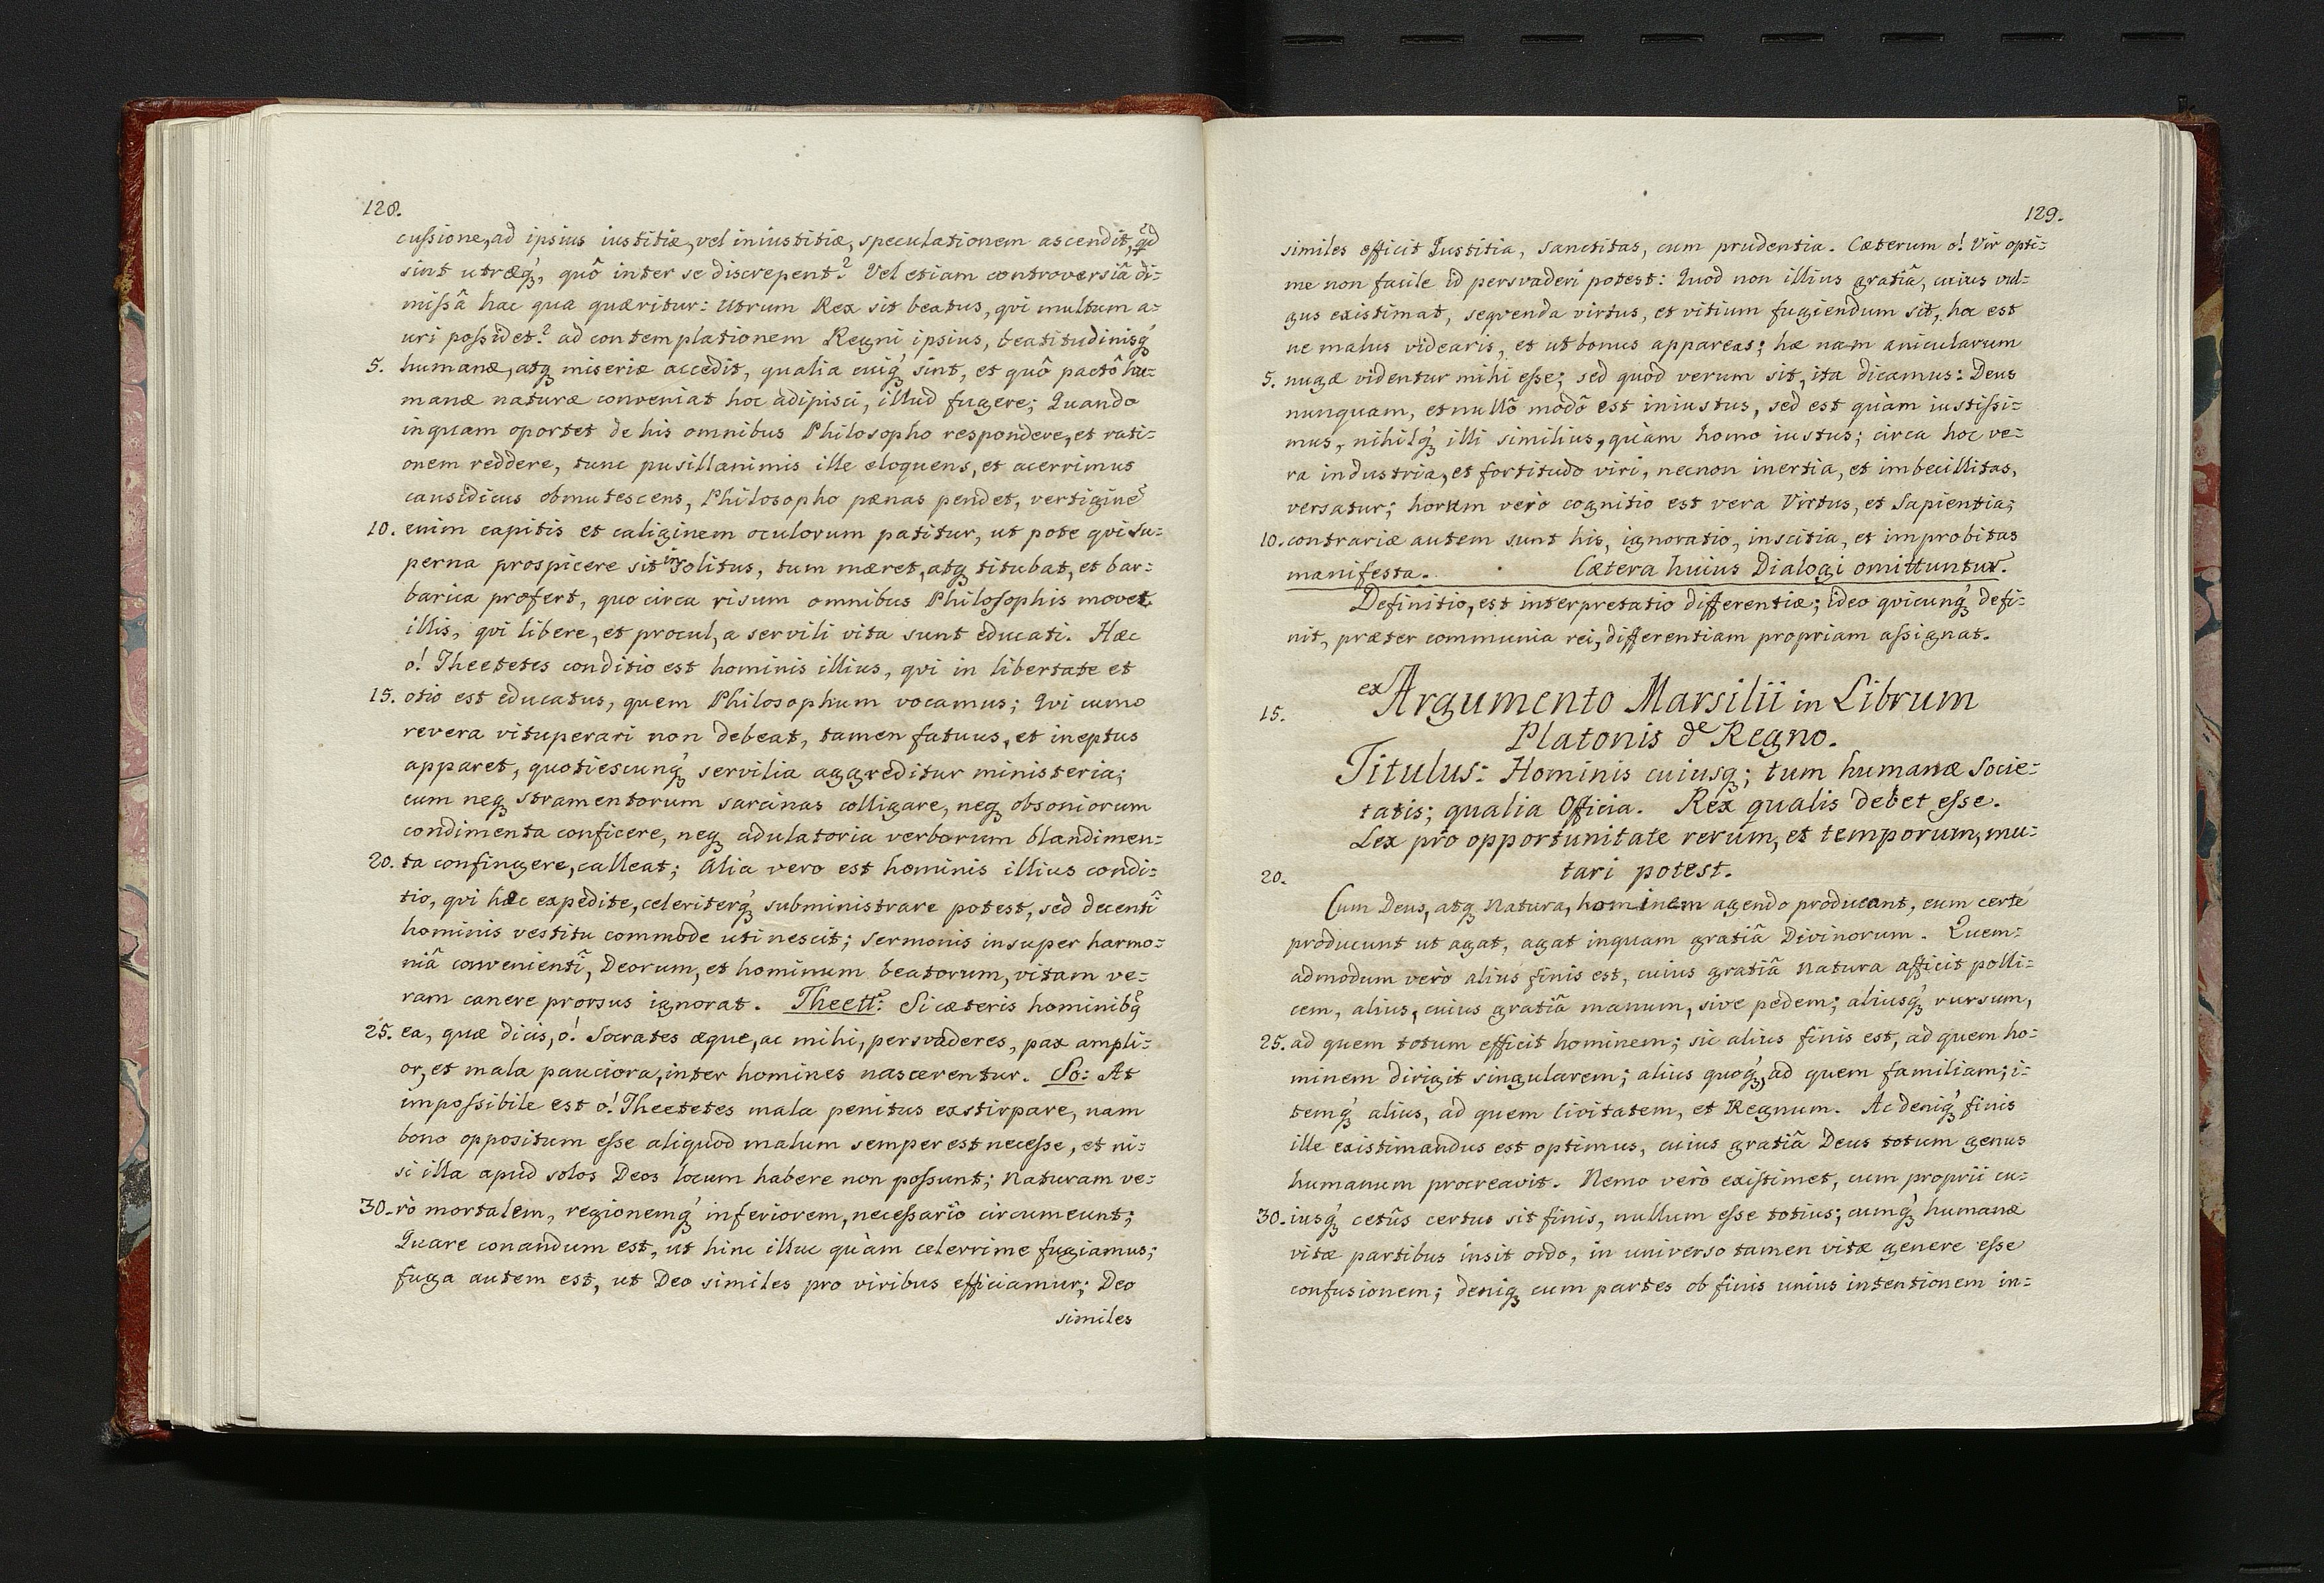 128.
cuſsione, ad ipsius iustitiæ, vel iniustitiæ, speculationem ascendit, qd
sint utræq₃́, quô inter se discrepent? Vel etiam controversiâ di=
miſsâ hac qua quæritur: Utrum Rex sit beatus, qvi multum a=
uri poſsidet? ad contemplationem Regni ipsius, beatitudinisq₃́
5. humanæ, atq₃ miseriæ accedit, qualia cuiq₃́ sint, et quô pactô hu=
manæ naturæ conveniat hoc adipisci, illud fugere; Quando
inquam oportet de his omnibus Philosopho respondere, et rati=
onem reddere, tunc pusillanimis ille eloquens, et acerrimus
causidicus obmutescens, Philosopho pænas pendet, vertiginē
10. enim capitis et caliginem oculorum patitur, ut pote qvi su=
perna prospicere sit insolitus, tum mæret, atq₃ titubat, et bar=
barica profert, quo circa risum omnibus Philoſophis movet
illis, qvi libere, et procul, a servili vita sunt educati. Hæc
o! Theetetes conditio est hominis illius, qvi in libertate et
15. otio est educatus, quem Philosophum vocamus; Qvi cum
revera vituperari non debeat, tamen fatuus, et ineptus
apparet, quotiescunq₃́ servilia aggreditur ministeria;
cum neq₃ stramentorum sarcinas colligare, neq₃ obsoniorum
condimenta conficere, neq₃ adulatoria verborum blandimen=
20. ta confingere, calleat; Alia vero est hominis illius condi=
tio, qvi hæc expedite, celeriterq₃́ subministrare potest, sed decentĩ
hominis vestitu commode uti nescit; sermonis insuper harmo=
niâ convenientĩ, Deorum, et hominum beatorum, vitam ve=
ram canere prorsus ignorat. Theett: Si cæteris hominibq
25. ea, quæ dicis, o! Socrates æque, ac mihi, persvaderes, pax ampli=
or, et mala pauciora, inter homines nascerentur. So: At
impoſsibile est o! Theetetes mala penitus exstirpare, nam
bono oppositum eſse aliquod malum semper est neceſse, et ni=
si illa apud solos Deos locum habere non poſsunt; Naturam ve=
30. rò mortalem, regionemq₃́ inferiorem, neceſsario circumeunt;
Quare conandum est, ut hinc illuc quàm celerrime fugiamus;
fuga autem est, ut Deo similes pro viribus efficiamur; Deo
similes
129.
similes efficit Iustitia, sanctitas, cum prudentia. Cæterum o! Vir opti=
me non facile id persvaderi potest: Quod non illius gratiâ, cuius vul=
gus existimat, seqvenda virtus, et vitium fugiendum sit, hoc est
ne malus videaris, et ut bonus appareas; hæ nam anicularum
5. nugæ videntur mihi eſse; sed quod verum sit, ita dicamus: Deus
nunquam, et nullô modô est iniustus, sed est quàm iustiſsi=
mus, nihilq₃́ illi similius, quàm homo iustus; circa hoc ve=
ra industria, et fortitudo viri, necnon inertia, et imbecillitas,
versatur; horum verò cognitio est vera Virtus, et Sapientia;
10. contrariæ autem sunt his, ignoratio, inscitia, et improbitas
manifesta. Cætera huius Dialogi omittuntur.
Definitio, est interpretatio differentiæ; ideo qvicunq₃́ defi=
nit, præter communia rei, differentiam propriam aſsignat.
ex Argumento Marsilii in Librum
15.
Platonis de Regno.
Titulus: Hominis cuiusq₃; tum humanæ Socie=
tatis; qualia Officia. Rex qualis debet eſse.
Lex pro opportunitate rerum, et temporum, mu=
tari potest.
20.
Cum Deus, atq₃ Natura, hominem agendo producant, eum certe
producunt ut agat, agat inquam gratiâ Divinorum. Quem=
admodum verò alius finis est, cuius gratiâ Natura afficit polli=
cem, alius, cuius gratiâ manum, sive pedem; aliusq₃́ rursum,
25. ad quem totum efficit hominem; sic alius finis est, ad quem ho=
minem dirigit singularem; alius quoq₃́, ad quem familiam; i=
temq₃́ alius, ad quem Civitatem, et Regnum. Ac deniq₃́ finis
ille existimandus est optimus, cuius gratiâ Deus totum genus
humanum procreavit. Nemo verò exiſtimet, cum proprii cu=
30. iusq₃́ cetûs certus sit finis, nullum eſse totius; cumq₃́ humanæ
vitæ partibus insit ordo, in universo tamen vitæ genere eſse
confusionem; deniq₃ cum partes ob finis unius intentionem in=